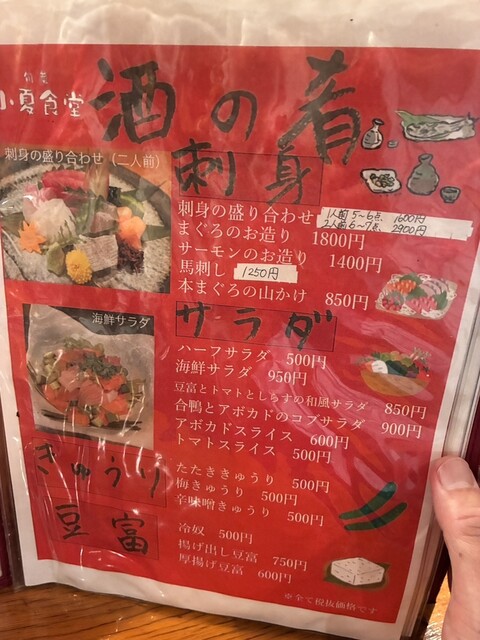 旬菜
小夏食堂
酒の肴
刺身の盛り合わせ（二人前）
刺身
刺身の盛り合わせ 1人前 5～6点 1600円
2人前 6～7点 2900円
まぐろのお造り 1800円
サーモンのお造り 1400円
馬刺し 1250円
本まぐろの山かけ 850円
海鮮サラダ
サラダ
ハーフサラダ 500円
海鮮サラダ 950円
豆富とトマトとしらすの和風サラダ 850円
合鴨とアボカドのコブサラダ 900円
アボカドスライス 600円
トマトスライス 500円
きゅうり
たたききゅうり 500円
梅きゅうり 500円
辛味噌きゅうり 500円
豆富
冷奴 500円
揚げ出し豆富 750円
厚揚げ豆富 600円
※全て税抜価格です